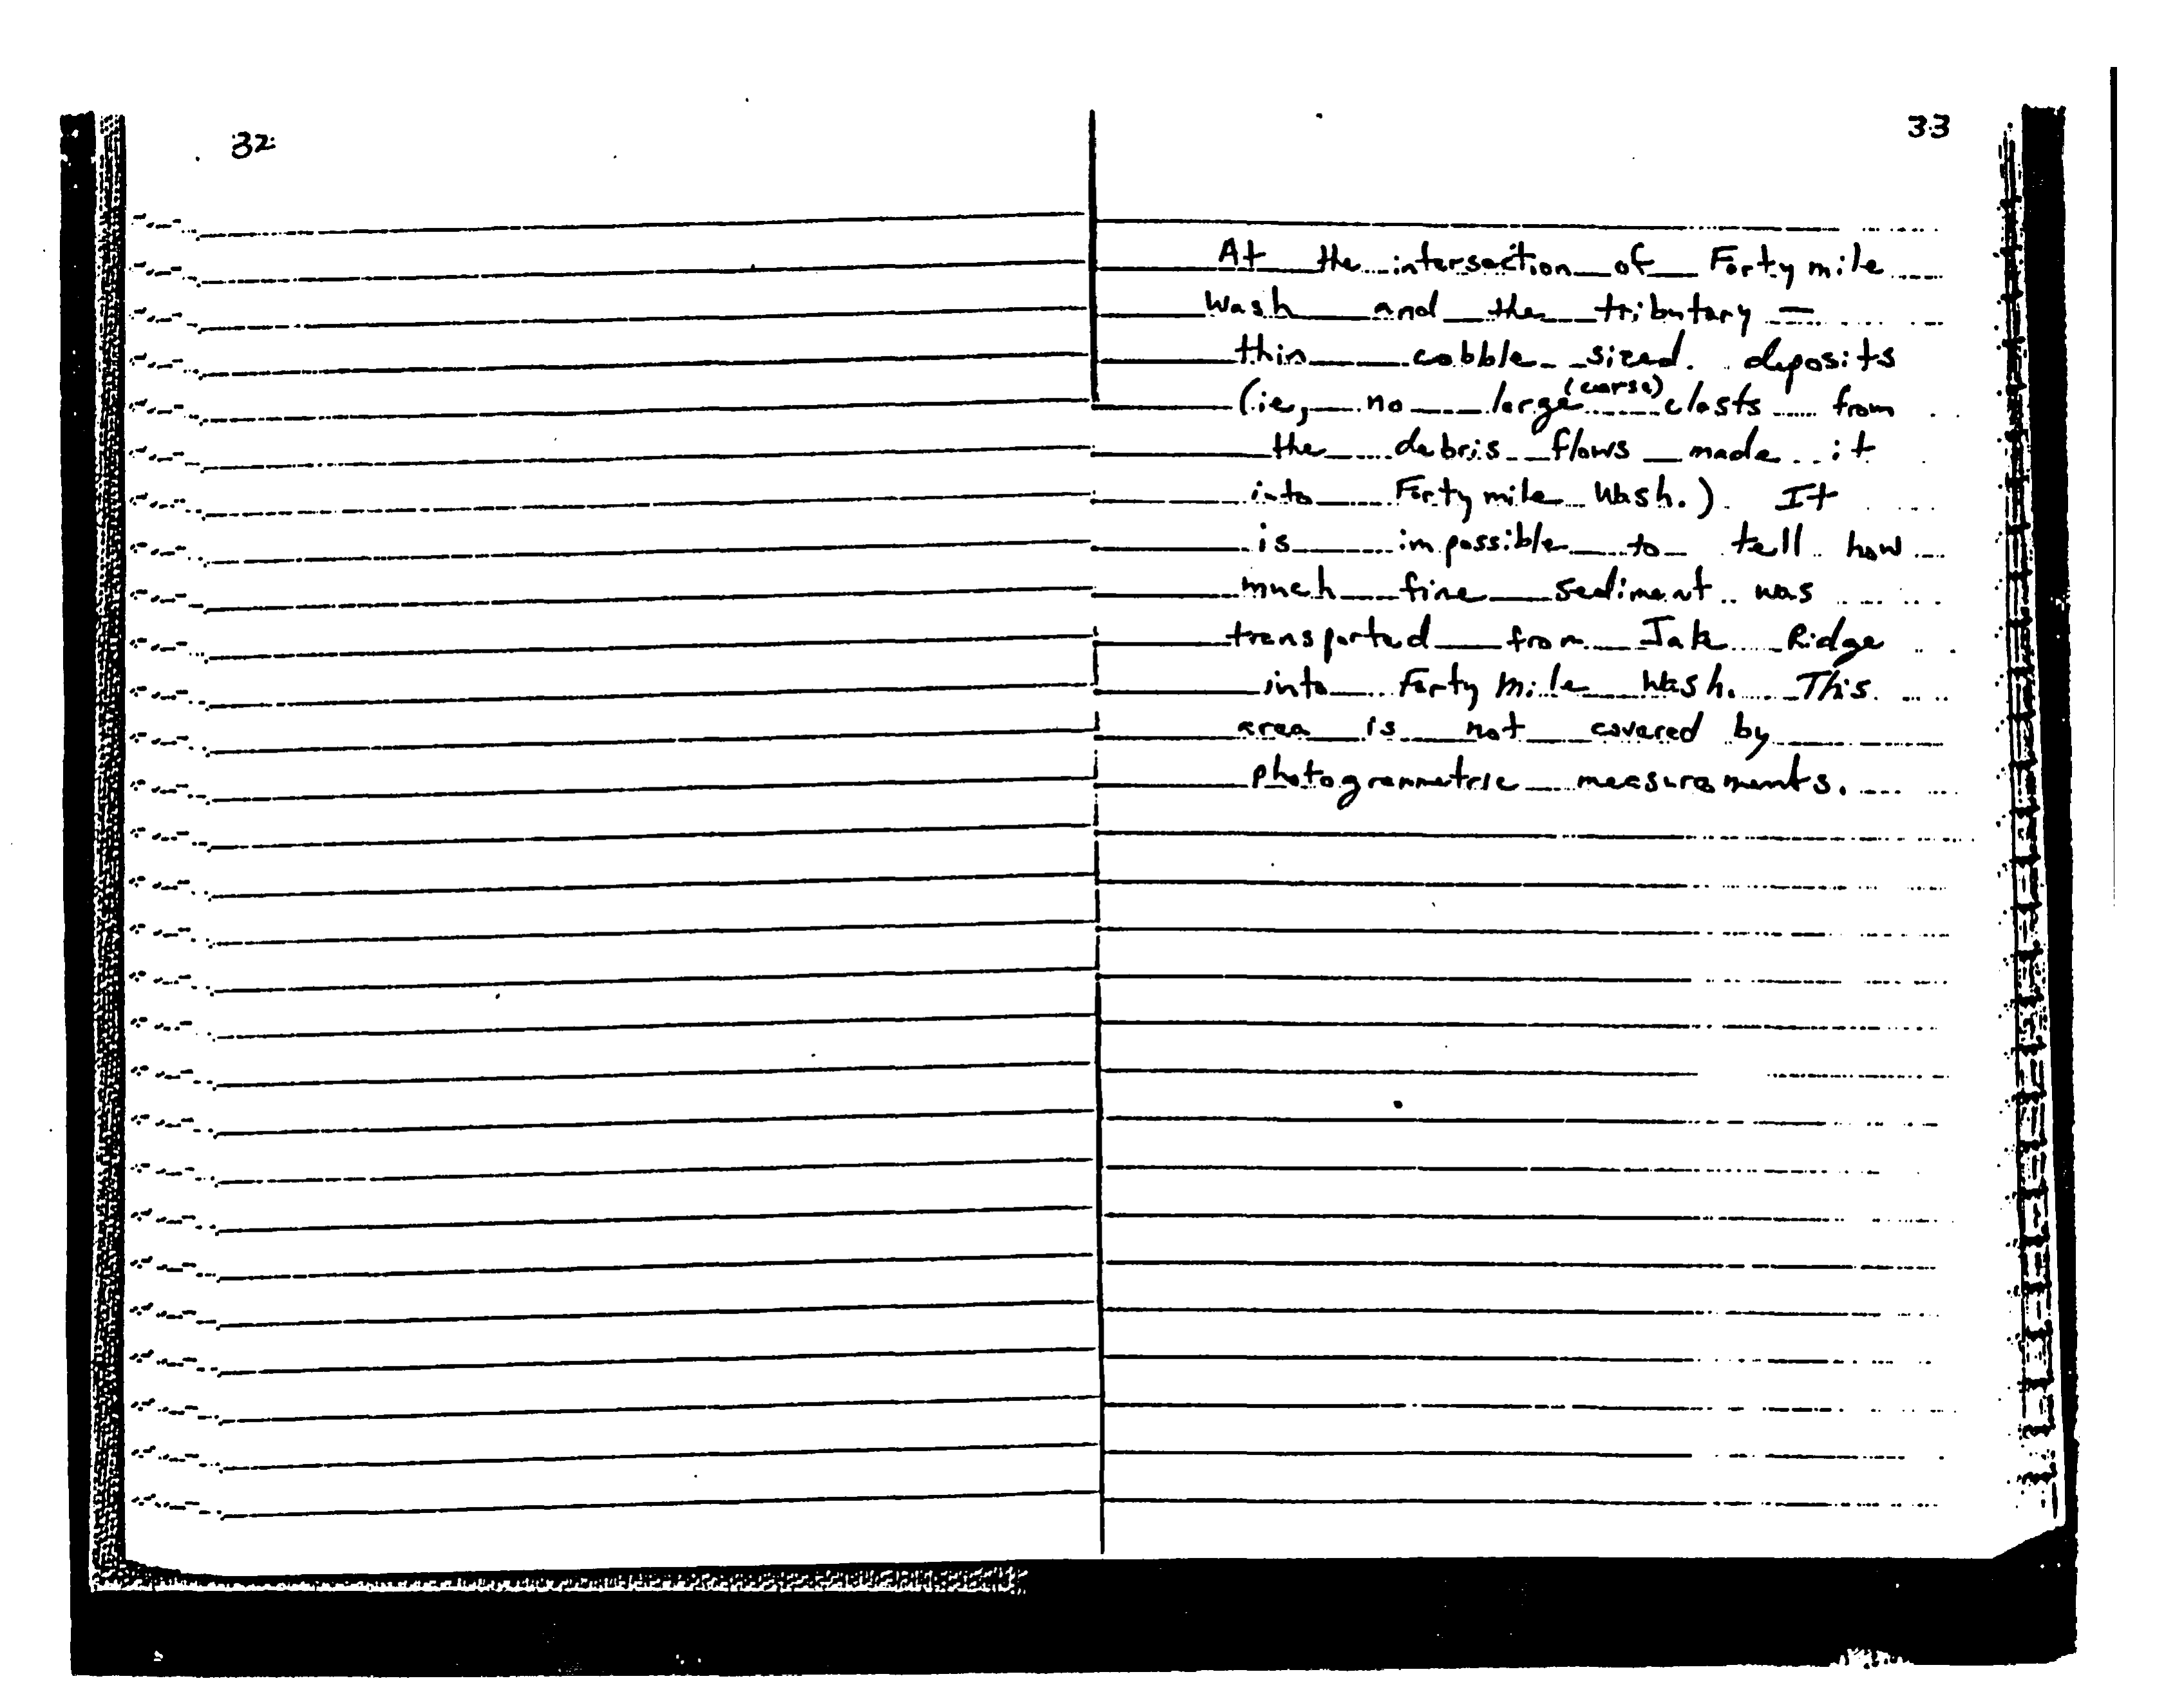 32
33
At the intersection of Forty mile
Wash and the tributary —
thin cobble sized deposits
(ie, no large (corse) clasts from
the debris flows made it
into Forty mile Wash.) It
is impossible to tell how
much fine sediment was
transported from Jak Ridge
into Forty Mile Wash. This
area is not covered by
photogrammetric measurements.